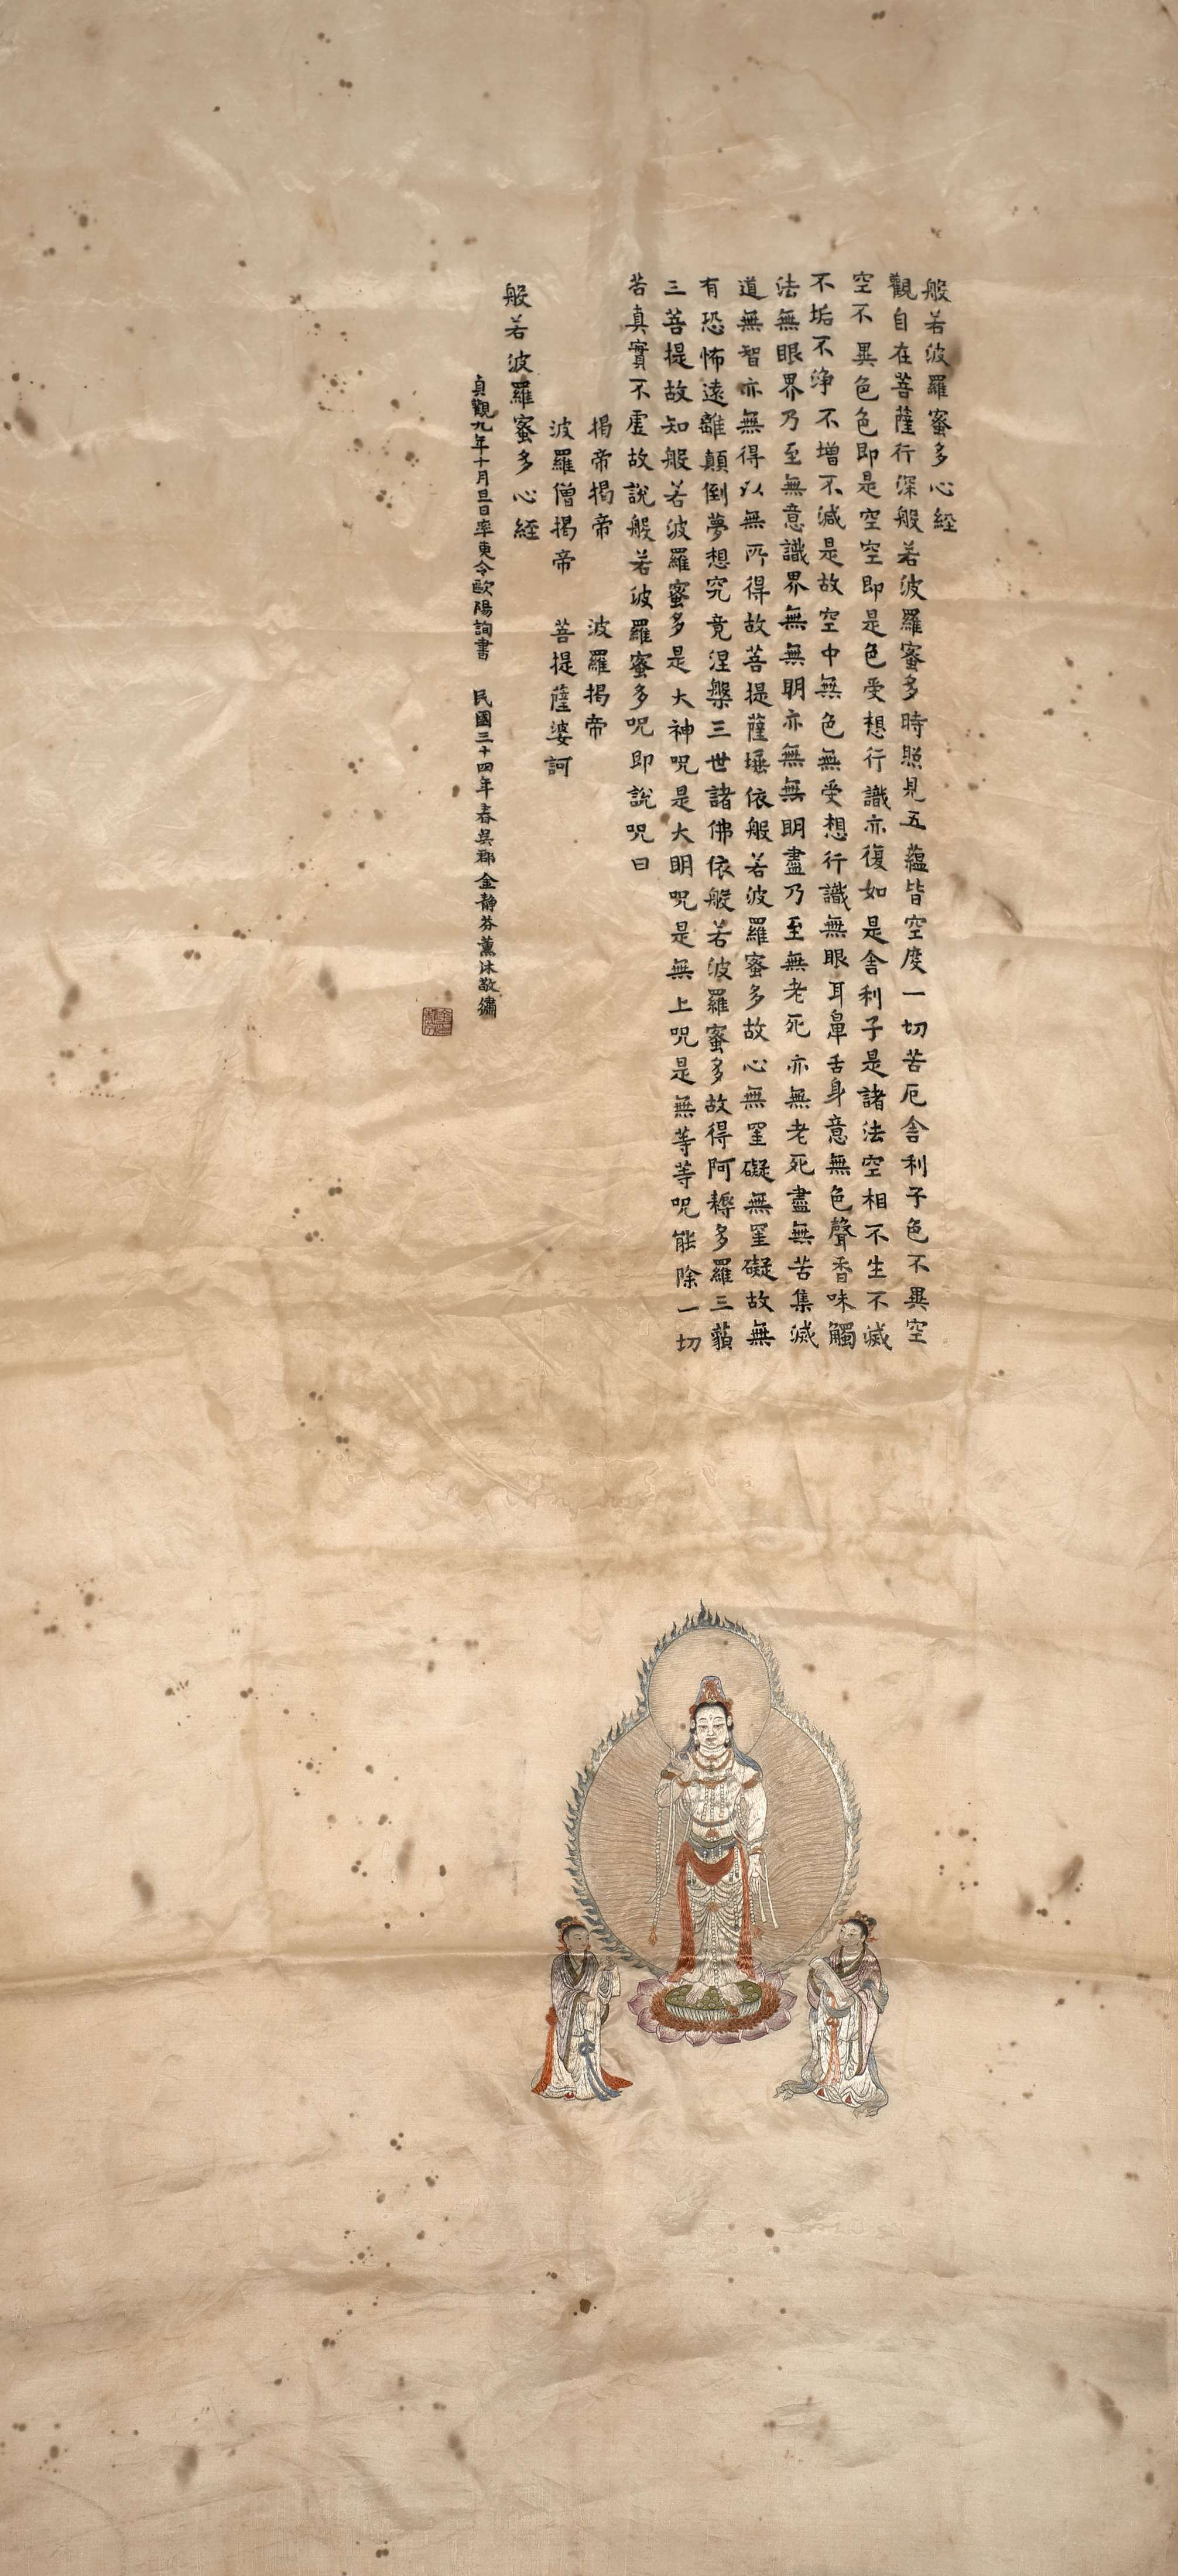 般若波羅蜜多心経
觀自在菩薩行深般若波羅蜜多時照見五蘊皆空度一切苦厄舍利子色不異空
空不異色色即是空空即是色受想行識亦復如是舍利子是諸法空相不生不滅
不垢不淨不增不減是故空中無色無受想行識無眼耳鼻舌身意無色聲香味觸
法無眼界乃至無意識界無無明亦無無明盡乃至無老死亦無老死盡無苦集滅
道無智亦無得以無所得故菩提薩埵依般若波羅蜜多故心無罣礙無罣礙故無
有恐怖遠離顛倒夢想究竟涅槃三世諸佛依般若波羅蜜多故得阿耨多羅三藐
三菩提故知般若波羅蜜多是大神呪是大明呪是無上呪是無等等呪能除一切
苦真實不虛故說般若波羅蜜多呪即說呪曰
揭帝揭帝 波羅揭帝
波羅僧揭帝 菩提薩婆訶
般若波羅蜜多心経
貞觀九年十月旦日率更令歐陽詢書 民國三十四年春吳郡金靜芬薰沐敬繡